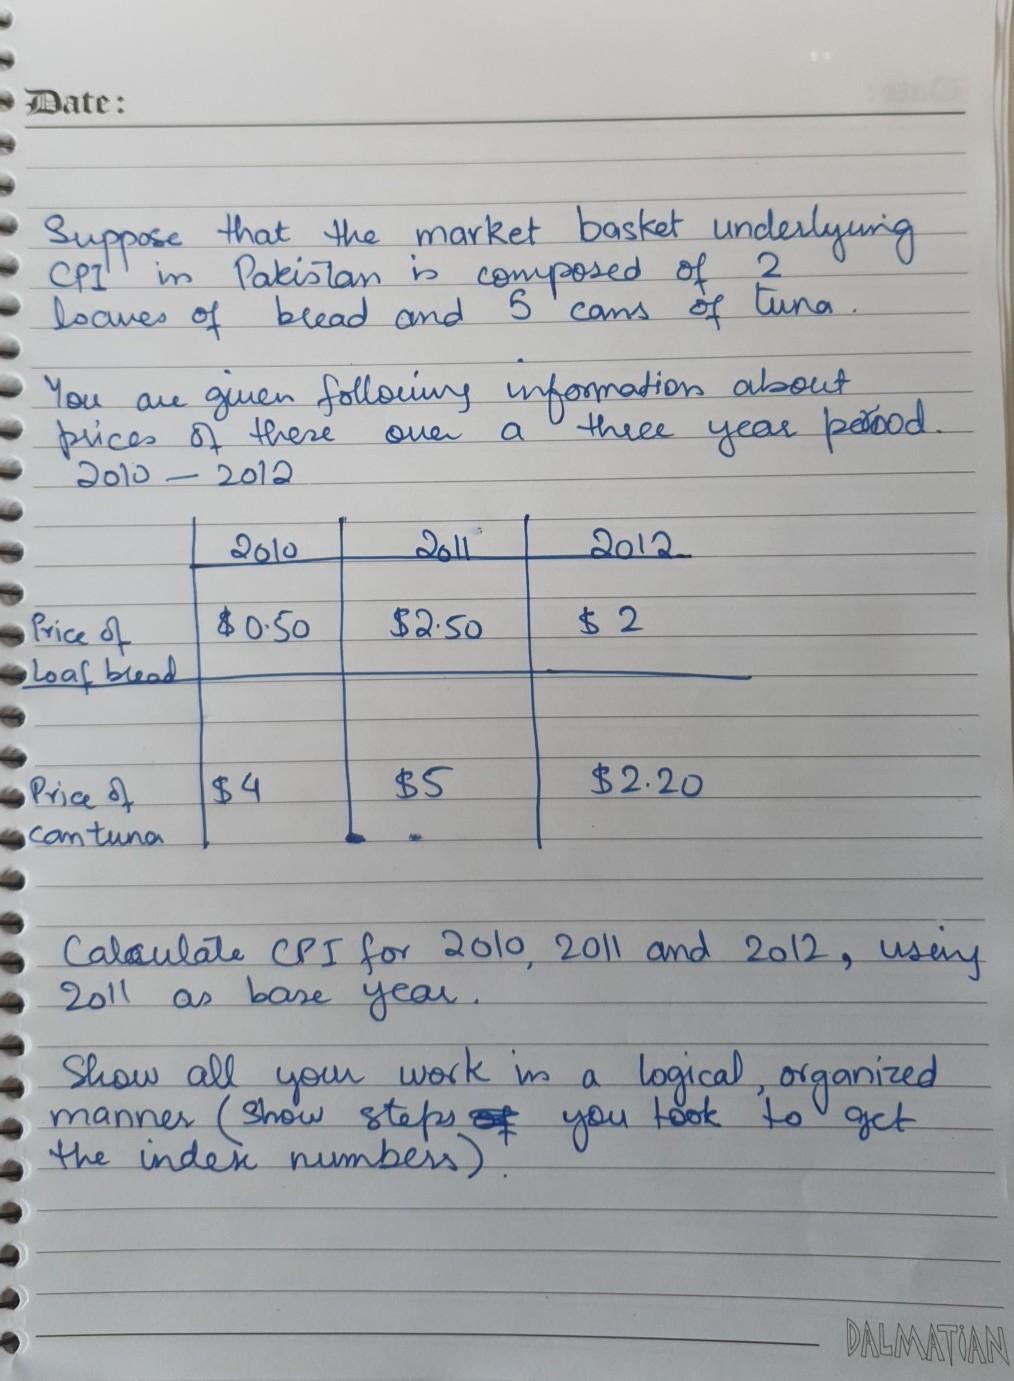 Date:
Suppose that the market basket underlyuing
CPI in Pakistan is composed of 2
loaves of bread and 5 cans of tuna.
You are given following information about
prices of these over a three year period.
2010 - 2012
2010 2011 2012
Price of $0.50 $2.50 $2
Loaf bread
Price of $4 $5 $2.20
can tuna
Calculate CPI for 2010, 2011 and 2012, using
2011 as base year.
Show all your work in a logical, organized
manner (show steps you took to get
the index numbers).
DALMATIAN